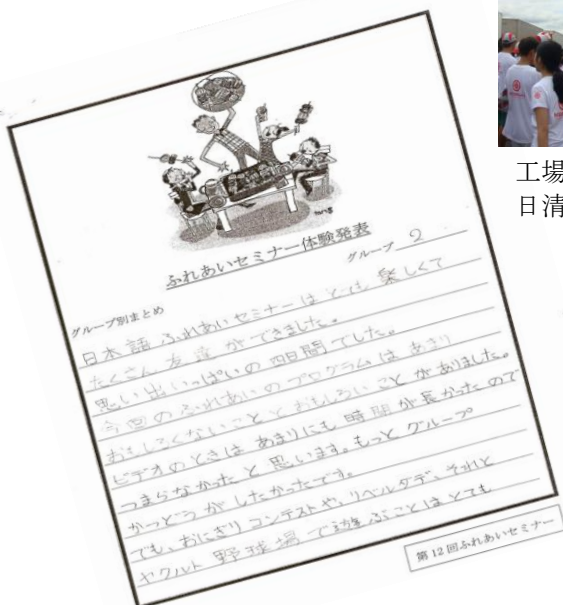 工場
日清
ふれあいセミナー体験発表
グループ 2
グループ別まとめ
日本語ふれあいセミナーはとても楽しくて
たくさん友達ができました。
思い出いっぱいの四日間でした。
今回のふれあいのプログラムはあまり
おもしろくないこととおもしろいことがありました。
ビデオのときはあまりにも時間が長かったので
つまらなかったと思います。もっとグループ
かつどうがしたかったです。
でも、おにぎりコンテストや、リベルダデ、それと
ヤクルト野球場で遊ぶことはとても
第12回ふれあいセミナー